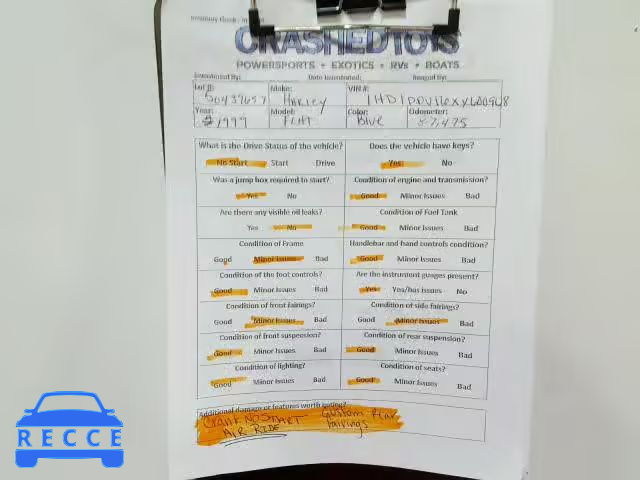 CRASHEDTOYS
POWERSPORTS • EXOTICS • RVs • BOATS
Inventoried By: Date Inventoried: Tagged By:
Lot #: Make: VIN #:
50439697 Harley
Year: Model: Color: Odometer:
1999 FLHT Blue 87,475
What is the Drive Status of the vehicle? Does the vehicle have keys?
No Start Start Drive Yes No
Was a jump box required to start? Condition of engine and transmission?
Yes No Good Minor Issues Bad
Are there any visible oil leaks? Condition of Fuel Tank
Yes No Good Minor Issues Bad
Condition of Frame Handlebar and hand controls condition?
Good Minor Issues Bad Good Minor Issues Bad
Condition of the foot controls? Are the instrument guages present?
Good Minor Issues Bad Yes Yes/has issues No
Condition of front fairings? Condition of side fairings?
Good Minor Issues Bad Good Minor Issues Bad
Condition of front suspension? Condition of rear suspension?
Good Minor Issues Bad Good Minor Issues Bad
Condition of lighting? Condition of seats?
Good Minor Issues Bad Good Minor Issues Bad
Additional damage or features worth noting?
Crank NO START Custom Rear
AIR RIDE fairings
RECCE